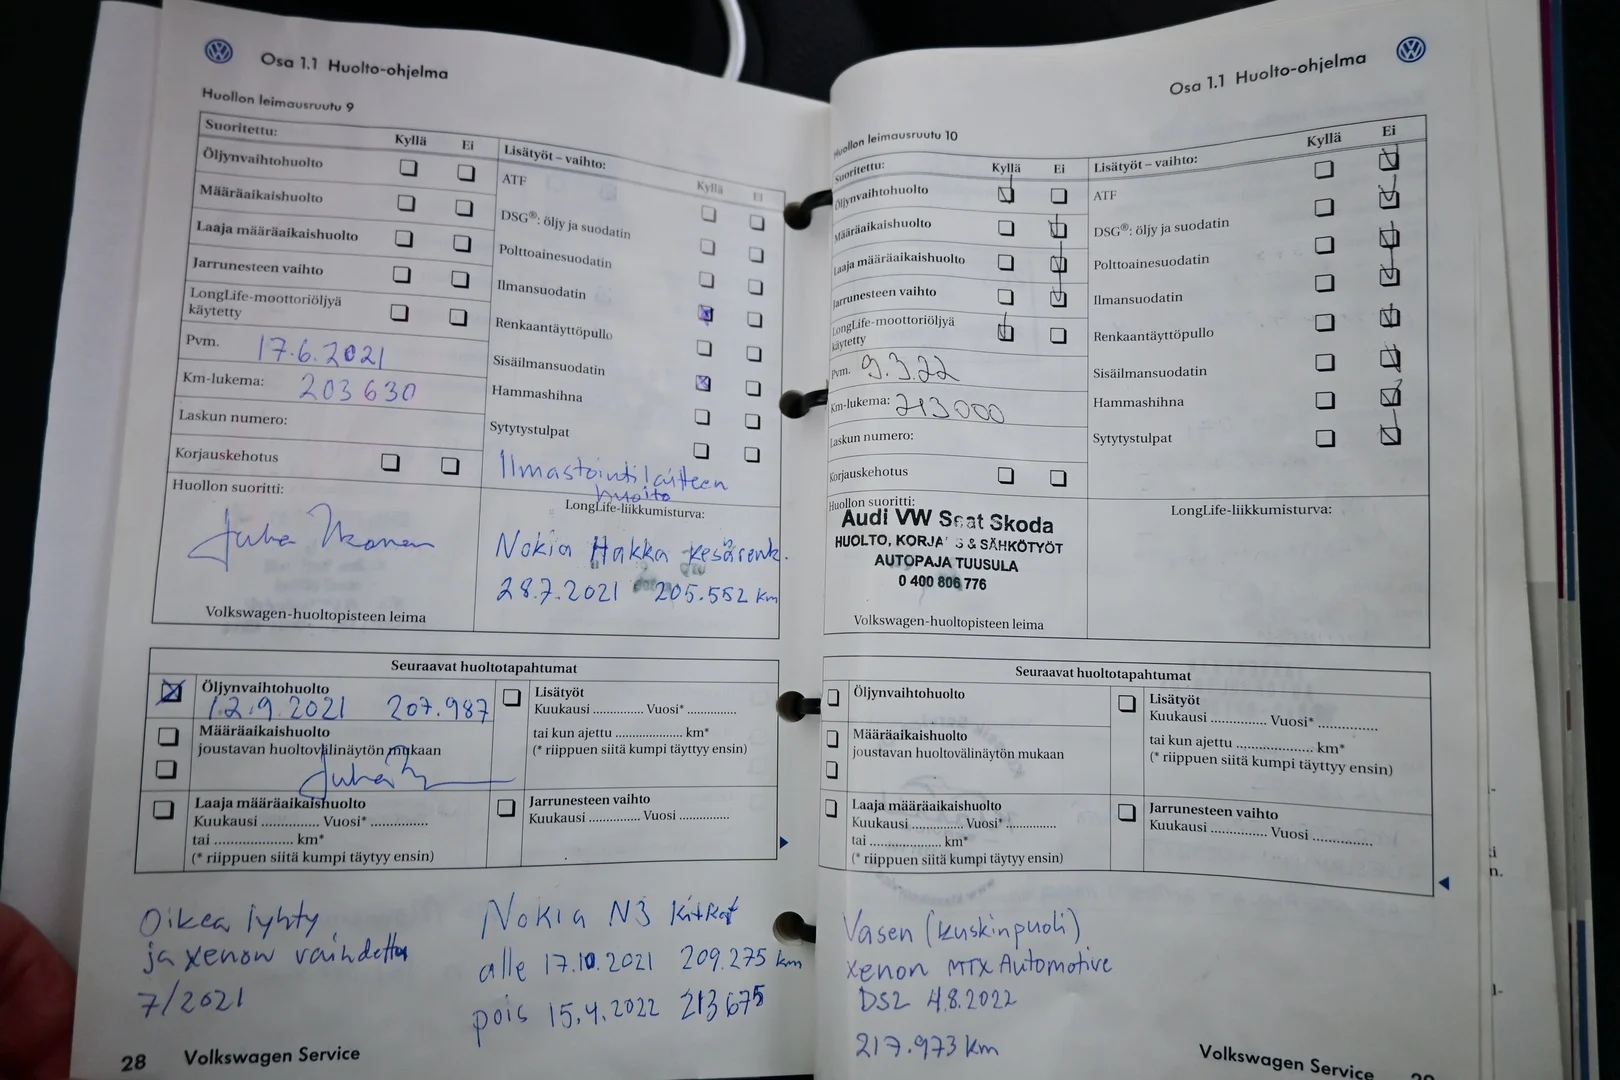 Osa 1.1 Huolto-ohjelma
Huollon leimausruutu 9
Suoritettu:
Kyllä Ei
Öljynvaihtohuolto
Määräaikaishuolto
Laaja määräaikaishuolto
Jarrunesteen vaihto
LongLife-moottoriöljyä
käytetty
Pvm. 17.6.2021
Km-lukema: 203 630
Laskun numero:
Korjauskehotus
Huollon suoritti:
Volkswagen-huoltopisteen leima
Lisätyöt – vaihto:
Kyllä Ei
ATF
DSG®: öljy ja suodatin
Polttoainesuodatin
Ilmansuodatin
Renkaantäyttöpullo
Sisäilmansuodatin
Hammashihna
Sytytystulpat
Ilmastointilaitteen
huolto
LongLife-liikkumisturva:
Nokia Hakka kesärenk.
28.7.2021 205.552 km
Seuraavat huoltotapahtumat
Öljynvaihtohuolto
12.9.2021 207.987
Määräaikaishuolto
joustavan huoltovälinäytön mukaan
Laaja määräaikaishuolto
Kuukausi .............. Vuosi* ..............
tai .................... km*
(* riippuen siitä kumpi täytyy ensin)
Lisätyöt
Kuukausi ............ Vuosi* ............
tai kun ajettu ................. km*
(* riippuen siitä kumpi täyttyy ensin)
Jarrunesteen vaihto
Kuukausi ............ Vuosi ............
Oikea lyhty
ja xenon vaihdettu
7/2021
Nokia N3 kitkat
alle 17.10.2021 209.275 km
pois 15.4.2022 213 675
28 Volkswagen Service
Osa 1.1 Huolto-ohjelma
Huollon leimausruutu 10
Suoritettu:
Kyllä Ei
Öljynvaihtohuolto
Määräaikaishuolto
Laaja määräaikaishuolto
Jarrunesteen vaihto
LongLife-moottoriöljyä
käytetty
Pvm. 9.3.22
Km-lukema: 213000
Laskun numero:
Korjauskehotus
Huollon suoritti:
Audi VW Seat Skoda
HUOLTO, KORJAUS & SÄHKÖTYÖT
AUTOPAJA TUUSULA
0 400 806 776
Volkswagen-huoltopisteen leima
Lisätyöt – vaihto:
Kyllä Ei
ATF
DSG®: öljy ja suodatin
Polttoainesuodatin
Ilmansuodatin
Renkaantäyttöpullo
Sisäilmansuodatin
Hammashihna
Sytytystulpat
LongLife-liikkumisturva:
Seuraavat huoltotapahtumat
Öljynvaihtohuolto
Määräaikaishuolto
joustavan huoltovälinäytön mukaan
Laaja määräaikaishuolto
Kuukausi ............ Vuosi* ............
tai .................... km*
(* riippuen siitä kumpi täytyy ensin)
Lisätyöt
Kuukausi ............ Vuosi* ............
tai kun ajettu .................. km*
(* riippuen siitä kumpi täyttyy ensin)
Jarrunesteen vaihto
Kuukausi ............ Vuosi ..............
Vasen (kuskinpuoli)
xenon MTX Automotive
DS2 4.8.2022
217.973 km
Volkswagen Service